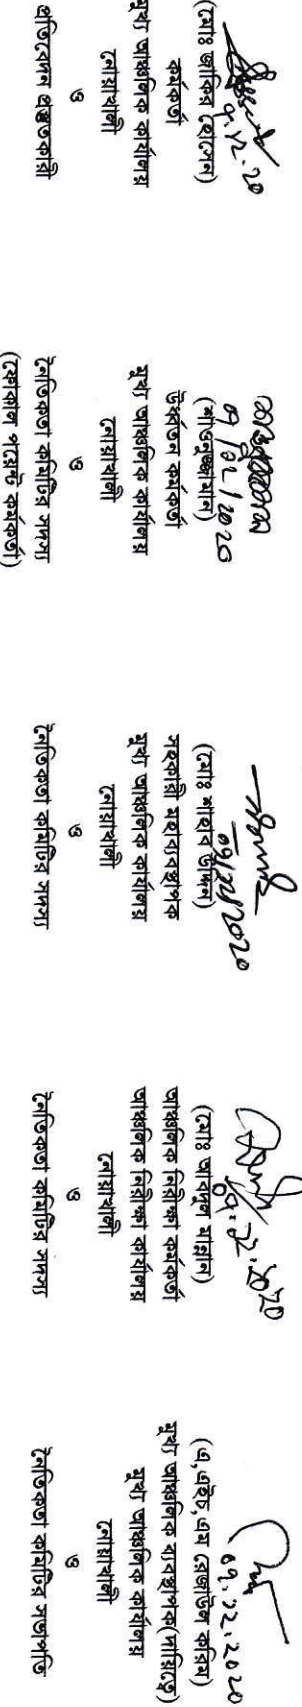 ৭.১২.২০
(মোঃ জাকির হোসেন)
কর্মকর্তা
মুখ্য আঞ্চলিক কার্যালয়
নোয়াখালী
ও
প্রতিবেদন প্রস্তুতকারী
(খাতনুজ্জামান)
উর্ধ্বতন কর্মকর্তা
মুখ্য আঞ্চলিক কার্যালয়
নোয়াখালী
ও
নৈতিকতা কমিটির সদস্য
(ফোকাল পয়েন্ট কর্মকর্তা)
(মোঃ শাহাব উদ্দিন)
সহকারী মহাব্যবস্থাপক
মুখ্য আঞ্চলিক কার্যালয়
নোয়াখালী
ও
নৈতিকতা কমিটির সদস্য
(মোঃ আবদুল মান্নান)
আঞ্চলিক নিরীক্ষা কর্মকর্তা
আঞ্চলিক নিরীক্ষা কার্যালয়
নোয়াখালী
ও
নৈতিকতা কমিটির সদস্য
০৭.১২.২০২০
(এ,এইচ,এম রেজাউল করিম)
মুখ্য আঞ্চলিক ব্যবস্থাপক(দায়িত্বে)
মুখ্য আঞ্চলিক কার্যালয়
নোয়াখালী
ও
নৈতিকতা কমিটির সভাপতি